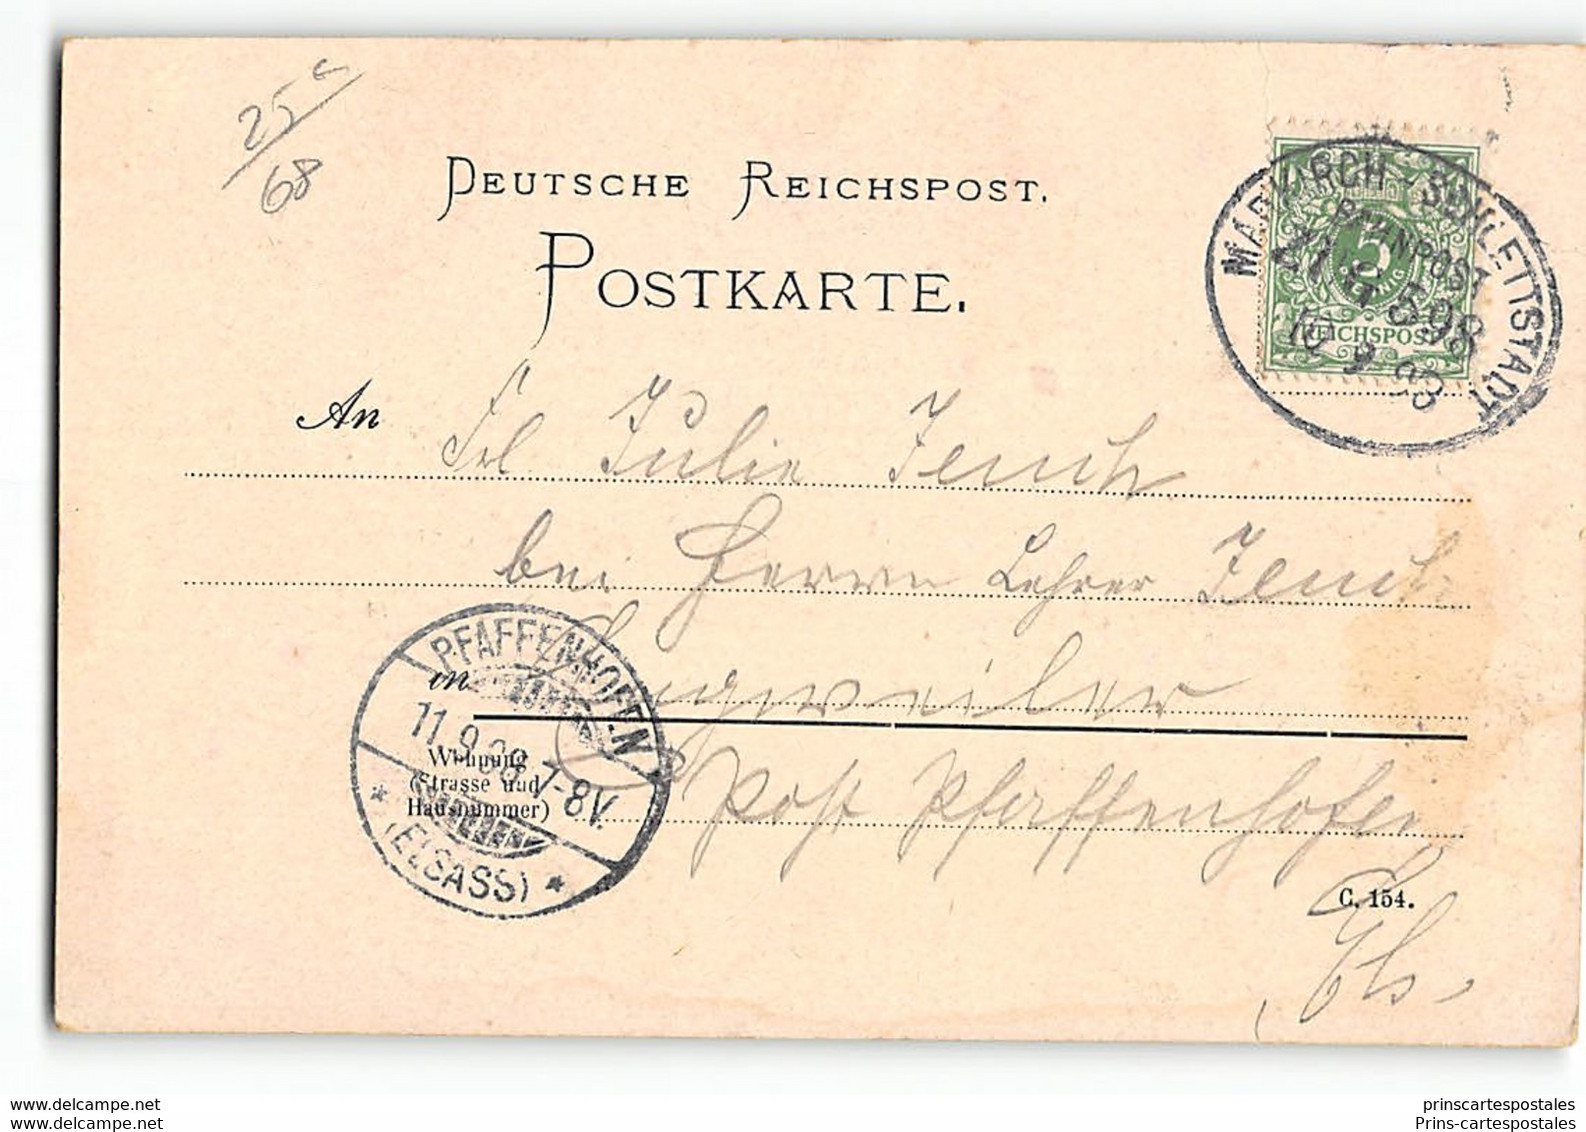 25 c
68
DEUTSCHE REICHSPOST.
POSTKARTE.
MARKIRCH - SCHLETTSTADT
BAHNPOST
ZUG 598
10 9 98
5
REICHSPOST
An Frl Julie Jenck
bei Herrn Lehrer Jenck
in
PFAFFENHOFEN
11.9.98 7-8V.
* (ELSASS) *
Wohnung
(Strasse und
Hausnummer)
Post Pfaffenhofen
C. 154.
Els.
www.delcampe.net
prinscartespostales
website
Prins-cartespostales